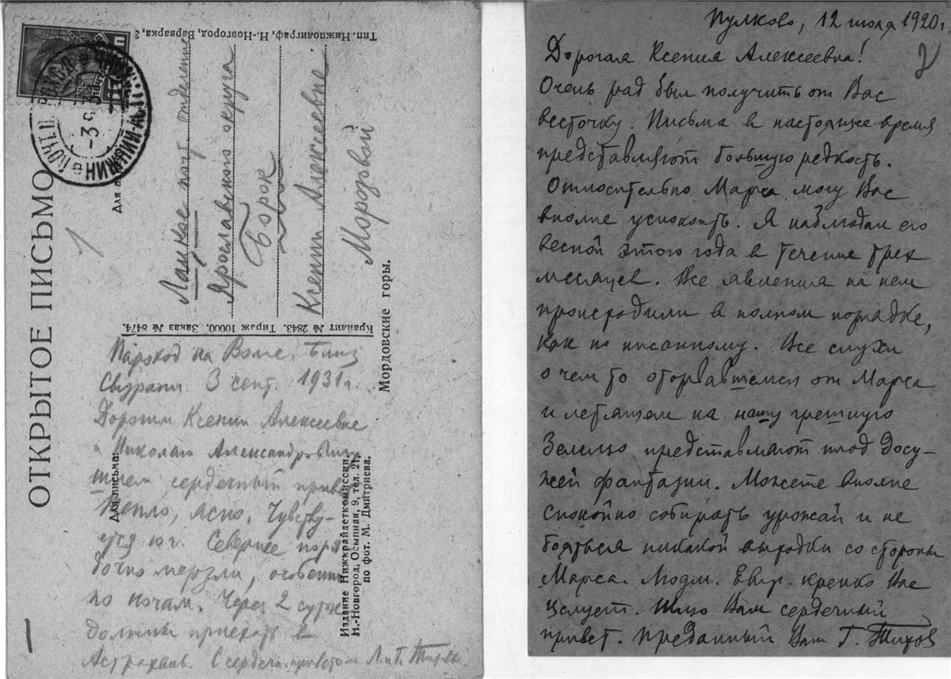 ОТКРЫТОЕ ПИСЬМО
Для письма:
Для а
НИЖНИЙ
-3 9 31
Тип. Нижполиграф, Н.-Новгород, Варварка, 3
почт. отделение
Ярославского округа
Борок
Ксении Алексеевне
Морозовой
Крайлит № 2843. Тираж 10000. Заказ № 8474.
Мордовские горы.
Издание Нижкрайдеткомиссии,
Н.-Новгород, Осыпная, 9, тел. 21
по фот. М. Дмитриева.
1
Пароход на Волге. Близ
Сызрани. 3 сент. 1931 г.
Дорогим Ксении Алексеевне
и Николаю Александровичу
шлем сердечный привет
Тепло, ясно. Чувству-
ется юг. Севернее поря
дочно мерзли, особенно
по ночам. Через 2 суток
должны приехать в
Астрахань. С сердечн. приветом Л. и Г. Тиховы
Пулково, 12 июля 1920 г.
2
Дорогая Ксения Алексеевна!
Очень рад был получить от Вас
весточку. Письма в настоящее время
представляют большую редкость.
Относительно Марса могу Вас
вполне успокоить. Я наблюдал его
весной этого года в течение трех
месяцев. Все явления на нем
происходили в полном порядке,
как по писанному. Все слухи
о чем то оторвавшемся от Марса
и летящем на нашу грешную
Землю представляют плод досу-
жей фантазии. Можете вполне
спокойно собирать урожай и не
бояться никакой выходки со стороны
Марса. Людм. Евгр. крепко Вас
целует. Шлю Вам сердечный
привет. Преданный Вам Г. Тихов